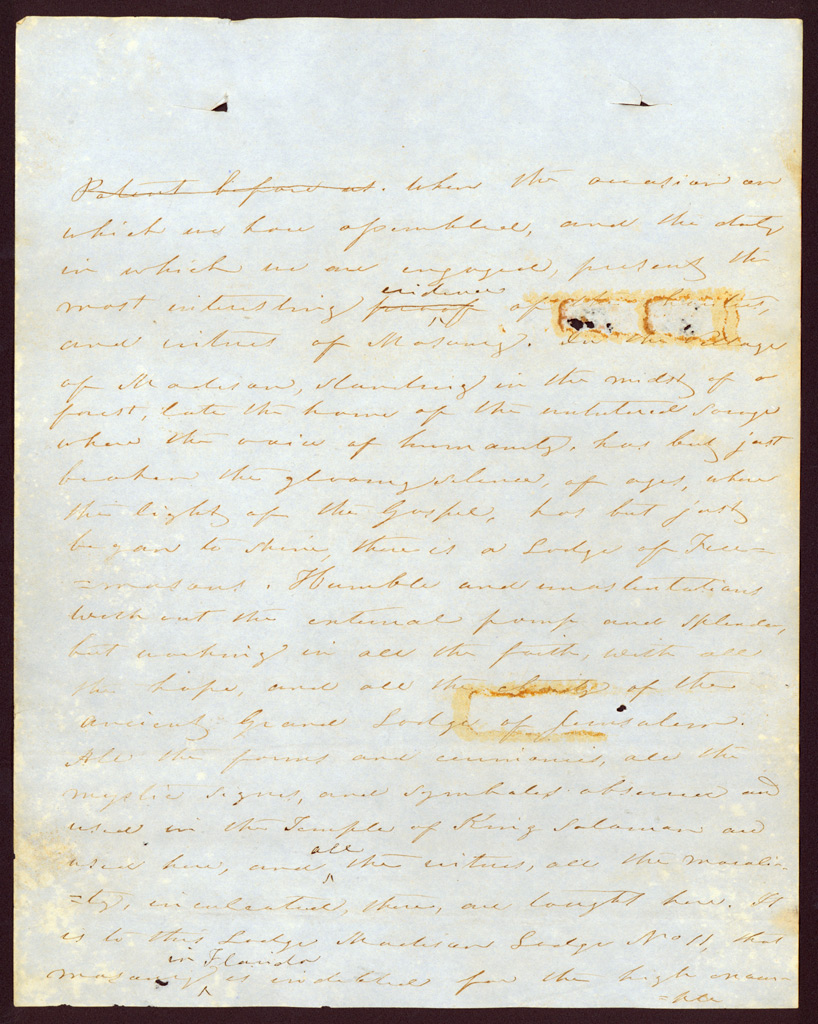 Potent before us. When the occasion on
which we have assembled, and the duty
in which we are engaged, presents the
evidence
most interesting proof of
and virtues of Masonry. In the Village
of Madison, standing in the midst of a
forest, late the home of the untutored savage
where the voice of humanity, has but just
broken the gloomy silence, of ages, where
the light of the Gospel, has but just
began to shine, there is a Lodge of Free=
=masons. Humble and unostentatious
with out the external pomp and splendor,
but working in all the faith, with all
the hope, and all the charity of the
ancient Grand Lodge of Jerusalem.
All the forms and ceremonies, all the
mystic signs, and symbols observed and
used in the Temple of King Solomon are
all
used here, and the virtues, all the morali-
=ty, inculcated, there, are taught here. It
is to this Lodge Madison Lodge No 11, that
in Florida
masonry is indebted for the high